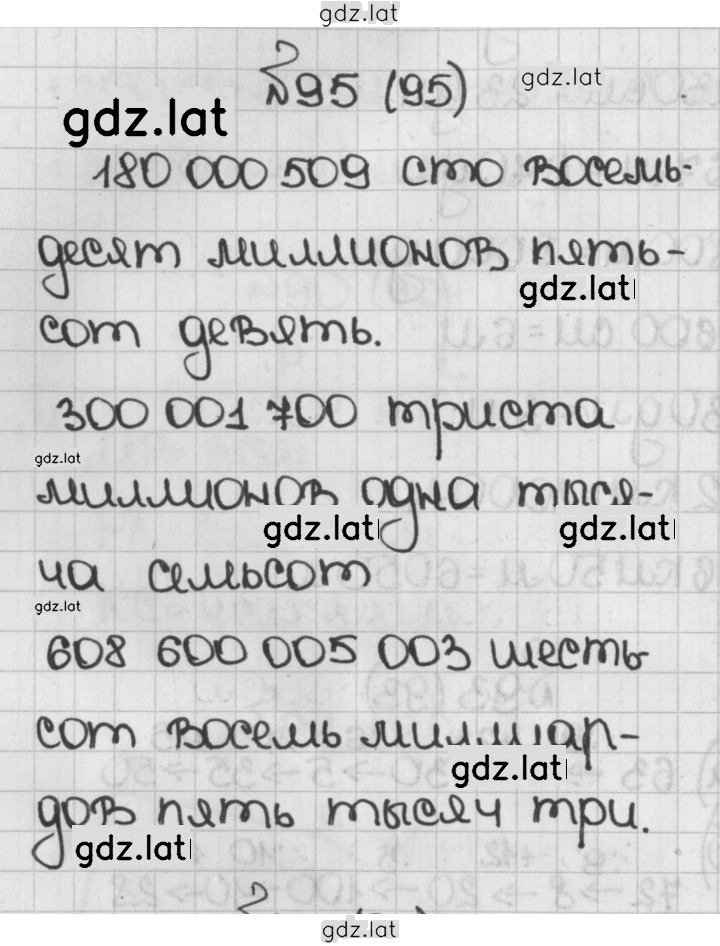 gdz.lat
№95 (95)
gdz.lat
gdz.lat
180 000 509 сто восемь-
десят миллионов пять-
gdz.lat
сот девять.
300 001 700 триста
gdz.lat
миллионов одна тыся-
gdz.lat
gdz.lat
ча семьсот
gdz.lat
608 600 005 003 шесть
сот восемь миллиар-
gdz.lat
дов пять тысяч три.
gdz.lat
gdz.lat